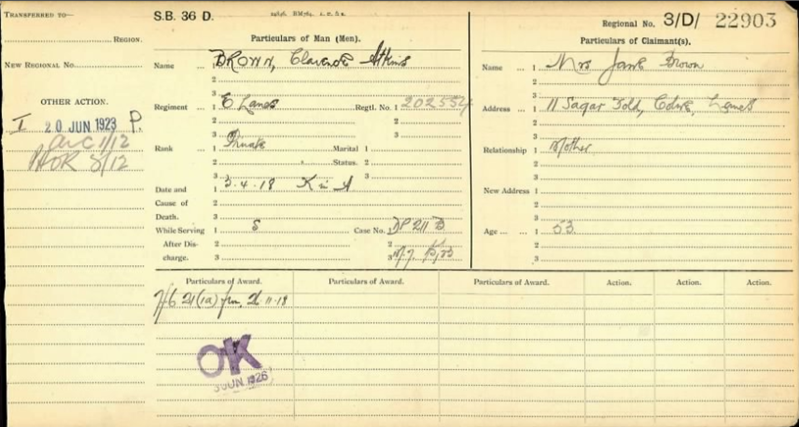 TRANSFERRED TO—
REGION.
NEW REGIONAL No.
OTHER ACTION.
I 20 JUN 1923 P.
S.B. 36 D.
Regional No. 3/D/ 22903
Particulars of Man (Men).
Name 1 BROWN, Clarence Atkins
2
3
Regiment 1 E Lancs Regtl. No. 1 202554
2 2
3 3
Rank 1 Private Marital 1
2 Status. 2
3 3
Date and 1 3.4.18 K in A
Cause of 2
Death. 3
While Serving 1 S Case No. 1 DP 211 B
After Dis- 2 2
charge. 3 3
Particulars of Claimant(s).
Name 1 Mrs Jane Brown
2
3
Address 1 11 Sagar Fold, Colne, Lancs
2
3
Relationship 1 Mother
2
3
New Address 1
2
3
Age 1 53
2
3
Particulars of Award. Particulars of Award. Particulars of Award. Action. Action. Action.
7/6 21(1a) fm. 11.18
OK
3 JUN 1926